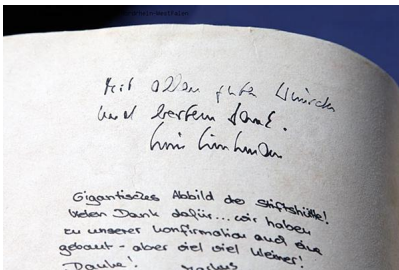 Mit allen guten Wünschen
und bestem Dank.
Gigantisches Abbild der Stiftshütte!
Vielen Dank dafür... wir haben
zu unserer Konfirmation auch eine
gebaut - aber viel viel kleiner!
Danke! Markus